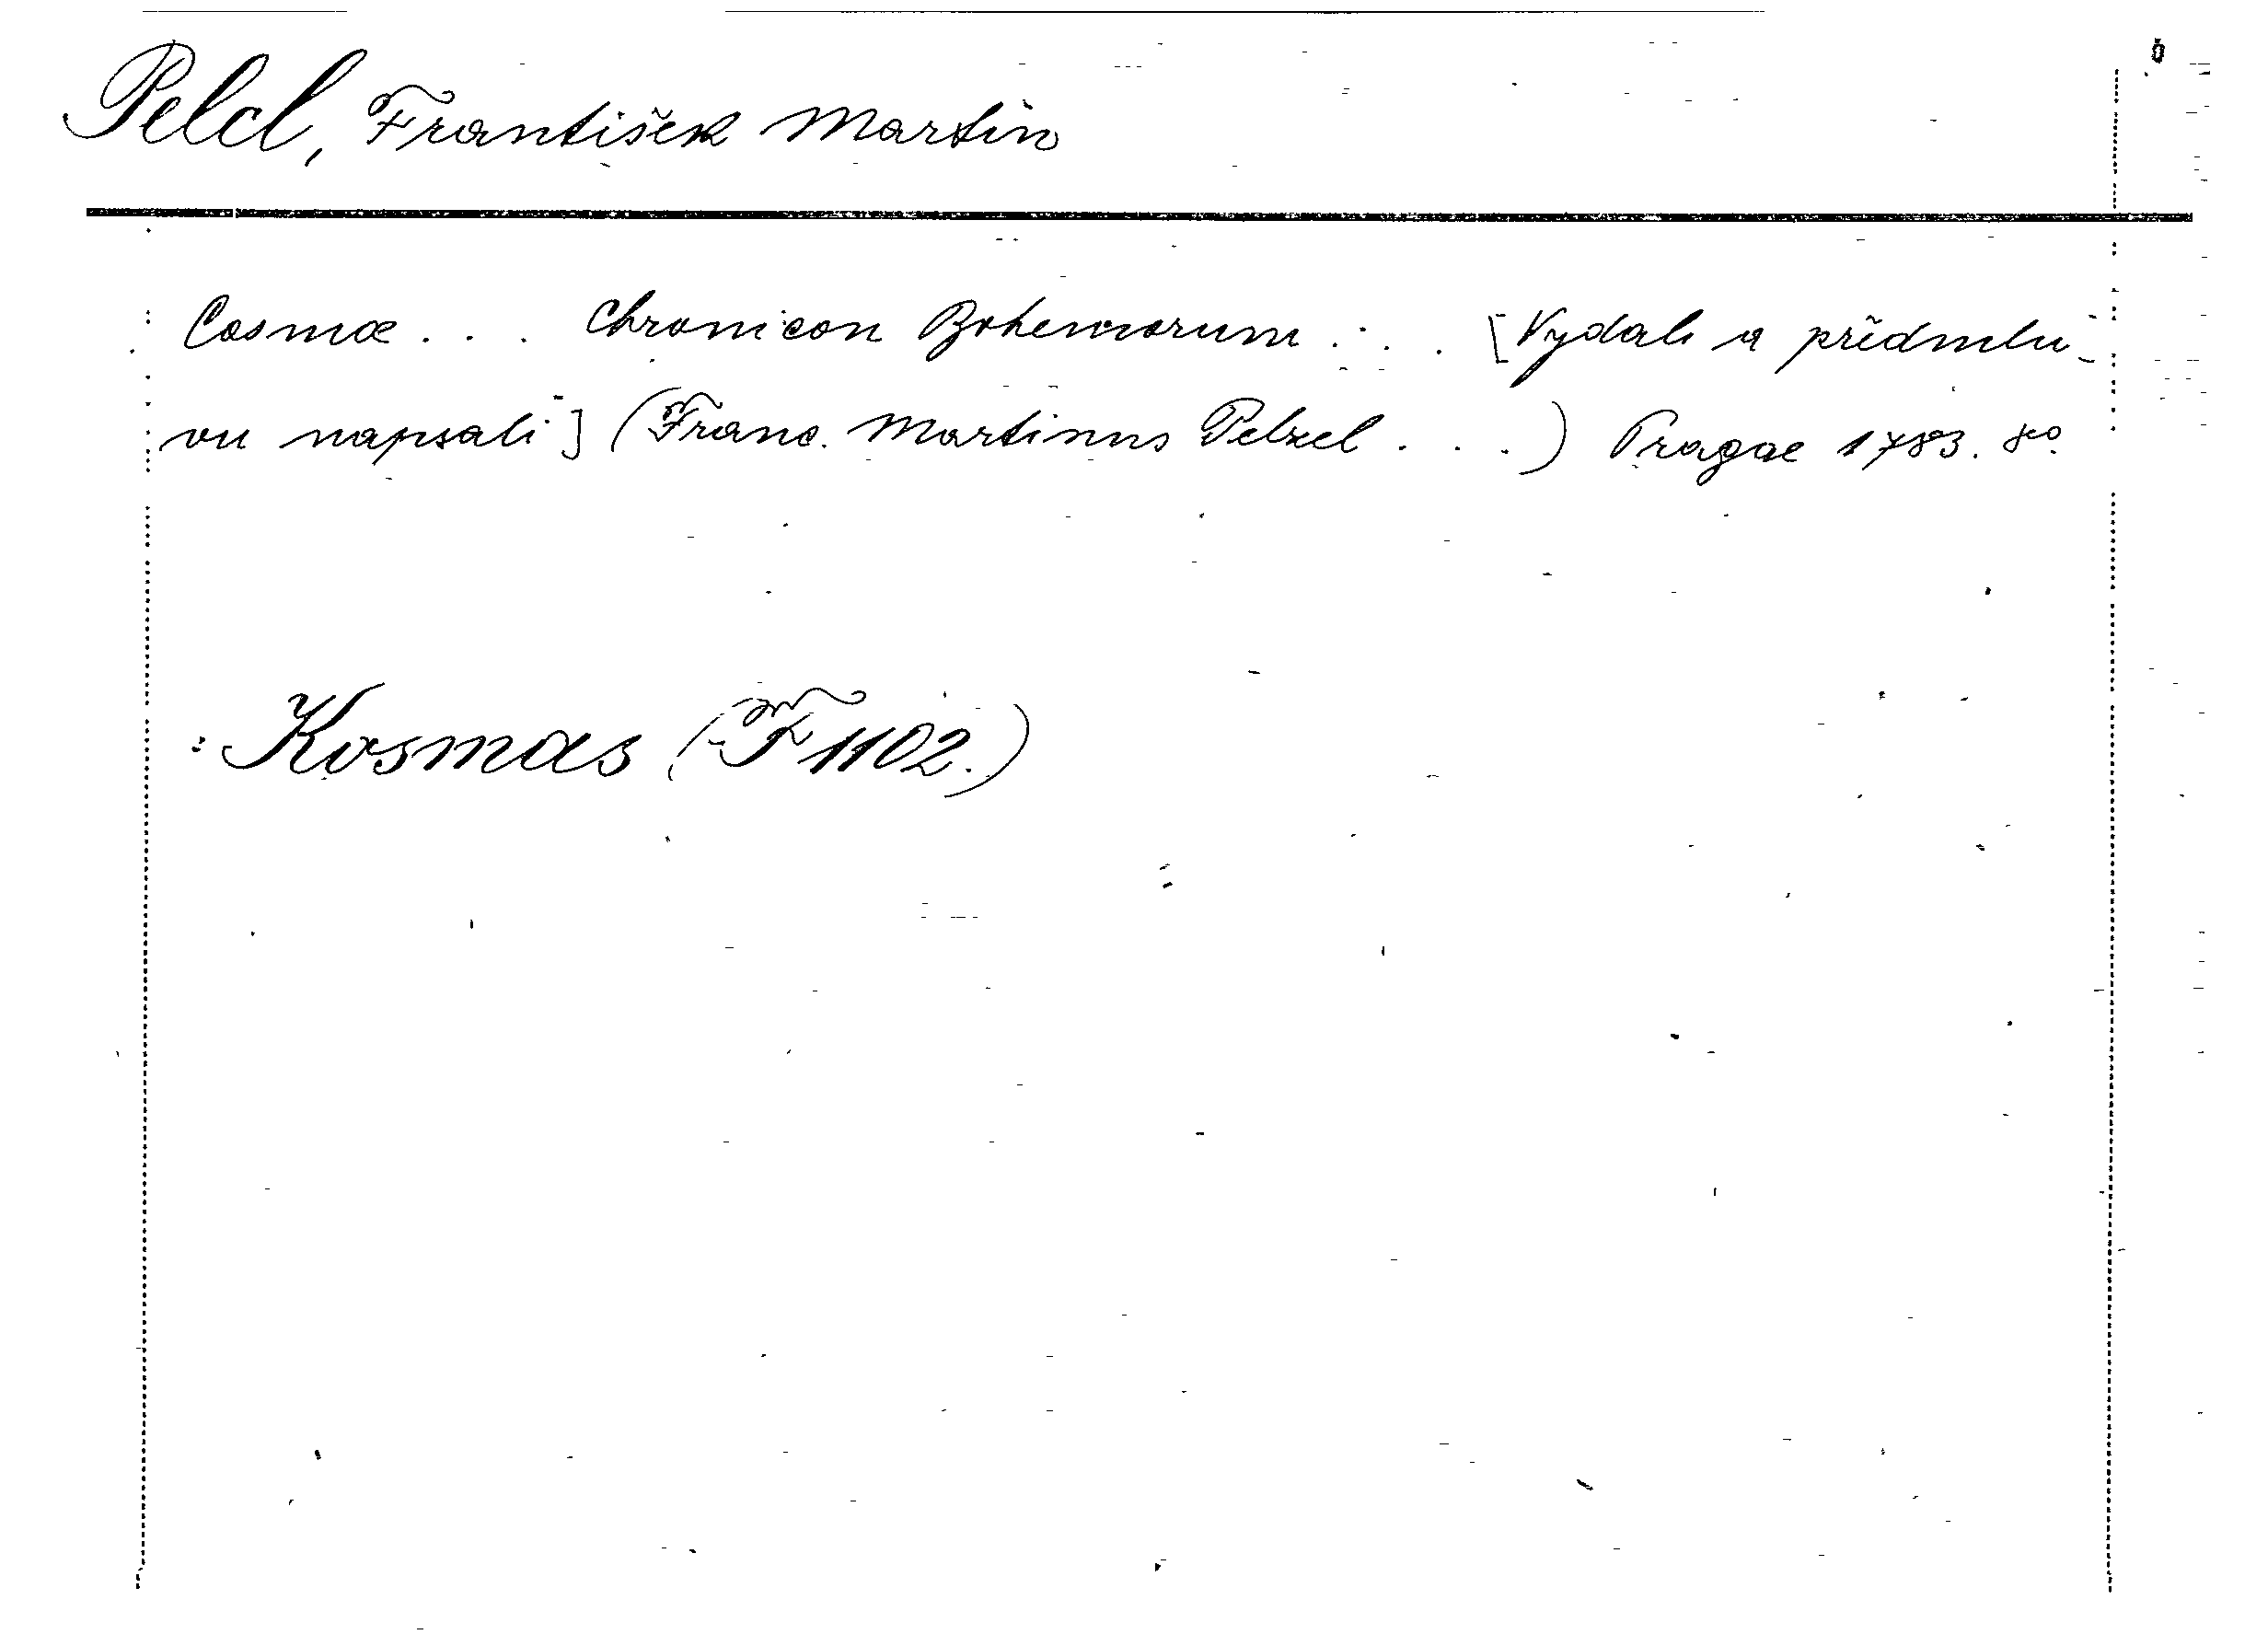 Pelcl, František Martin
Cosmæ . . . Chronicon Bohemorum . . . [Vydali a předmlu-
vu napsali] (Franc. Martinus Pelzel . . .) Pragae 1783. 8º.
: Kosmas (F 1102.)